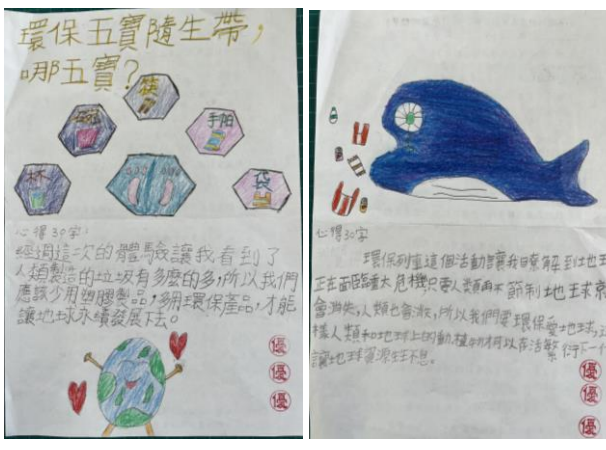 環保五寶隨生帶，
哪五寶？
筷
碗
手帕
杯
袋
心得30字：
經過這次的體驗讓我看到了
人類製造的垃圾有多麼的多，所以我們
應該少用塑膠製品，多用環保產品，才能
讓地球永續發展下去。
優
優
優
心得30字
環保列車這個活動讓我瞭解到地
正在面臨重大危機只要人類再不節制地球就
會消失，人類也會，所以我們要環保愛地球，
樣人類和地球上的動植物才可以存活繁衍下一
讓地球資源生生不息。
優
優
優